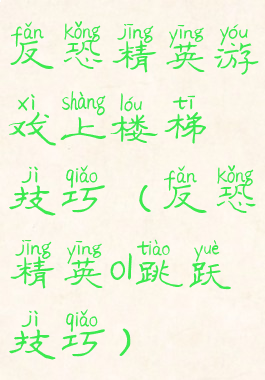 fǎn kǒng jīng yīng yóu
反恐精英游
xì shàng lóu tī
戏上楼梯
jì qiǎo fǎn kǒng
技巧（反恐
jīng yīng tiào yuè
精英ol跳跃
jì qiǎo
技巧）